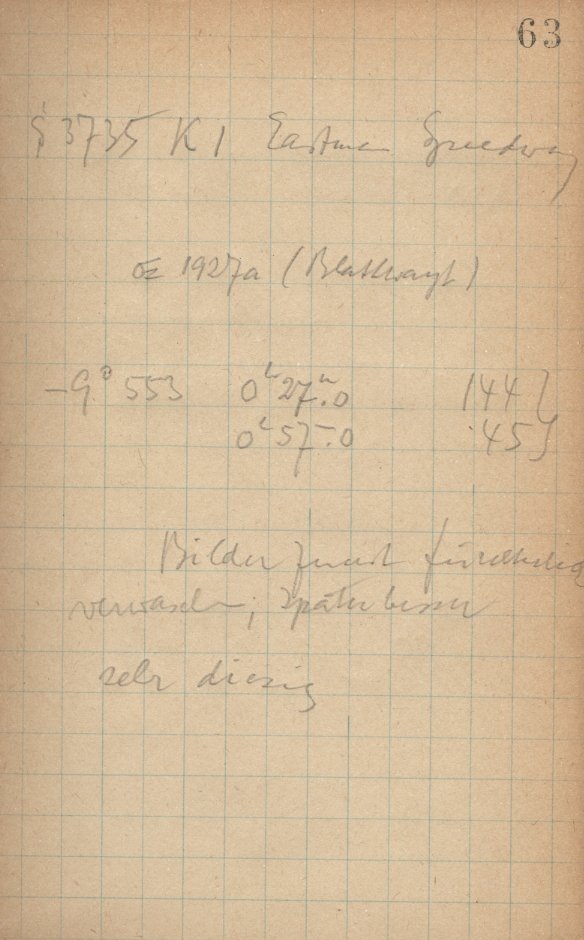 63
S 3735 K 1 Eastman Speedway
1927a (Blathwayt)
-9° 553 0h 27m.0 144 }
0h 57m.0 45 }
Bilder zuerst fürchterlich
verwaschen; später besser
sehr diesig